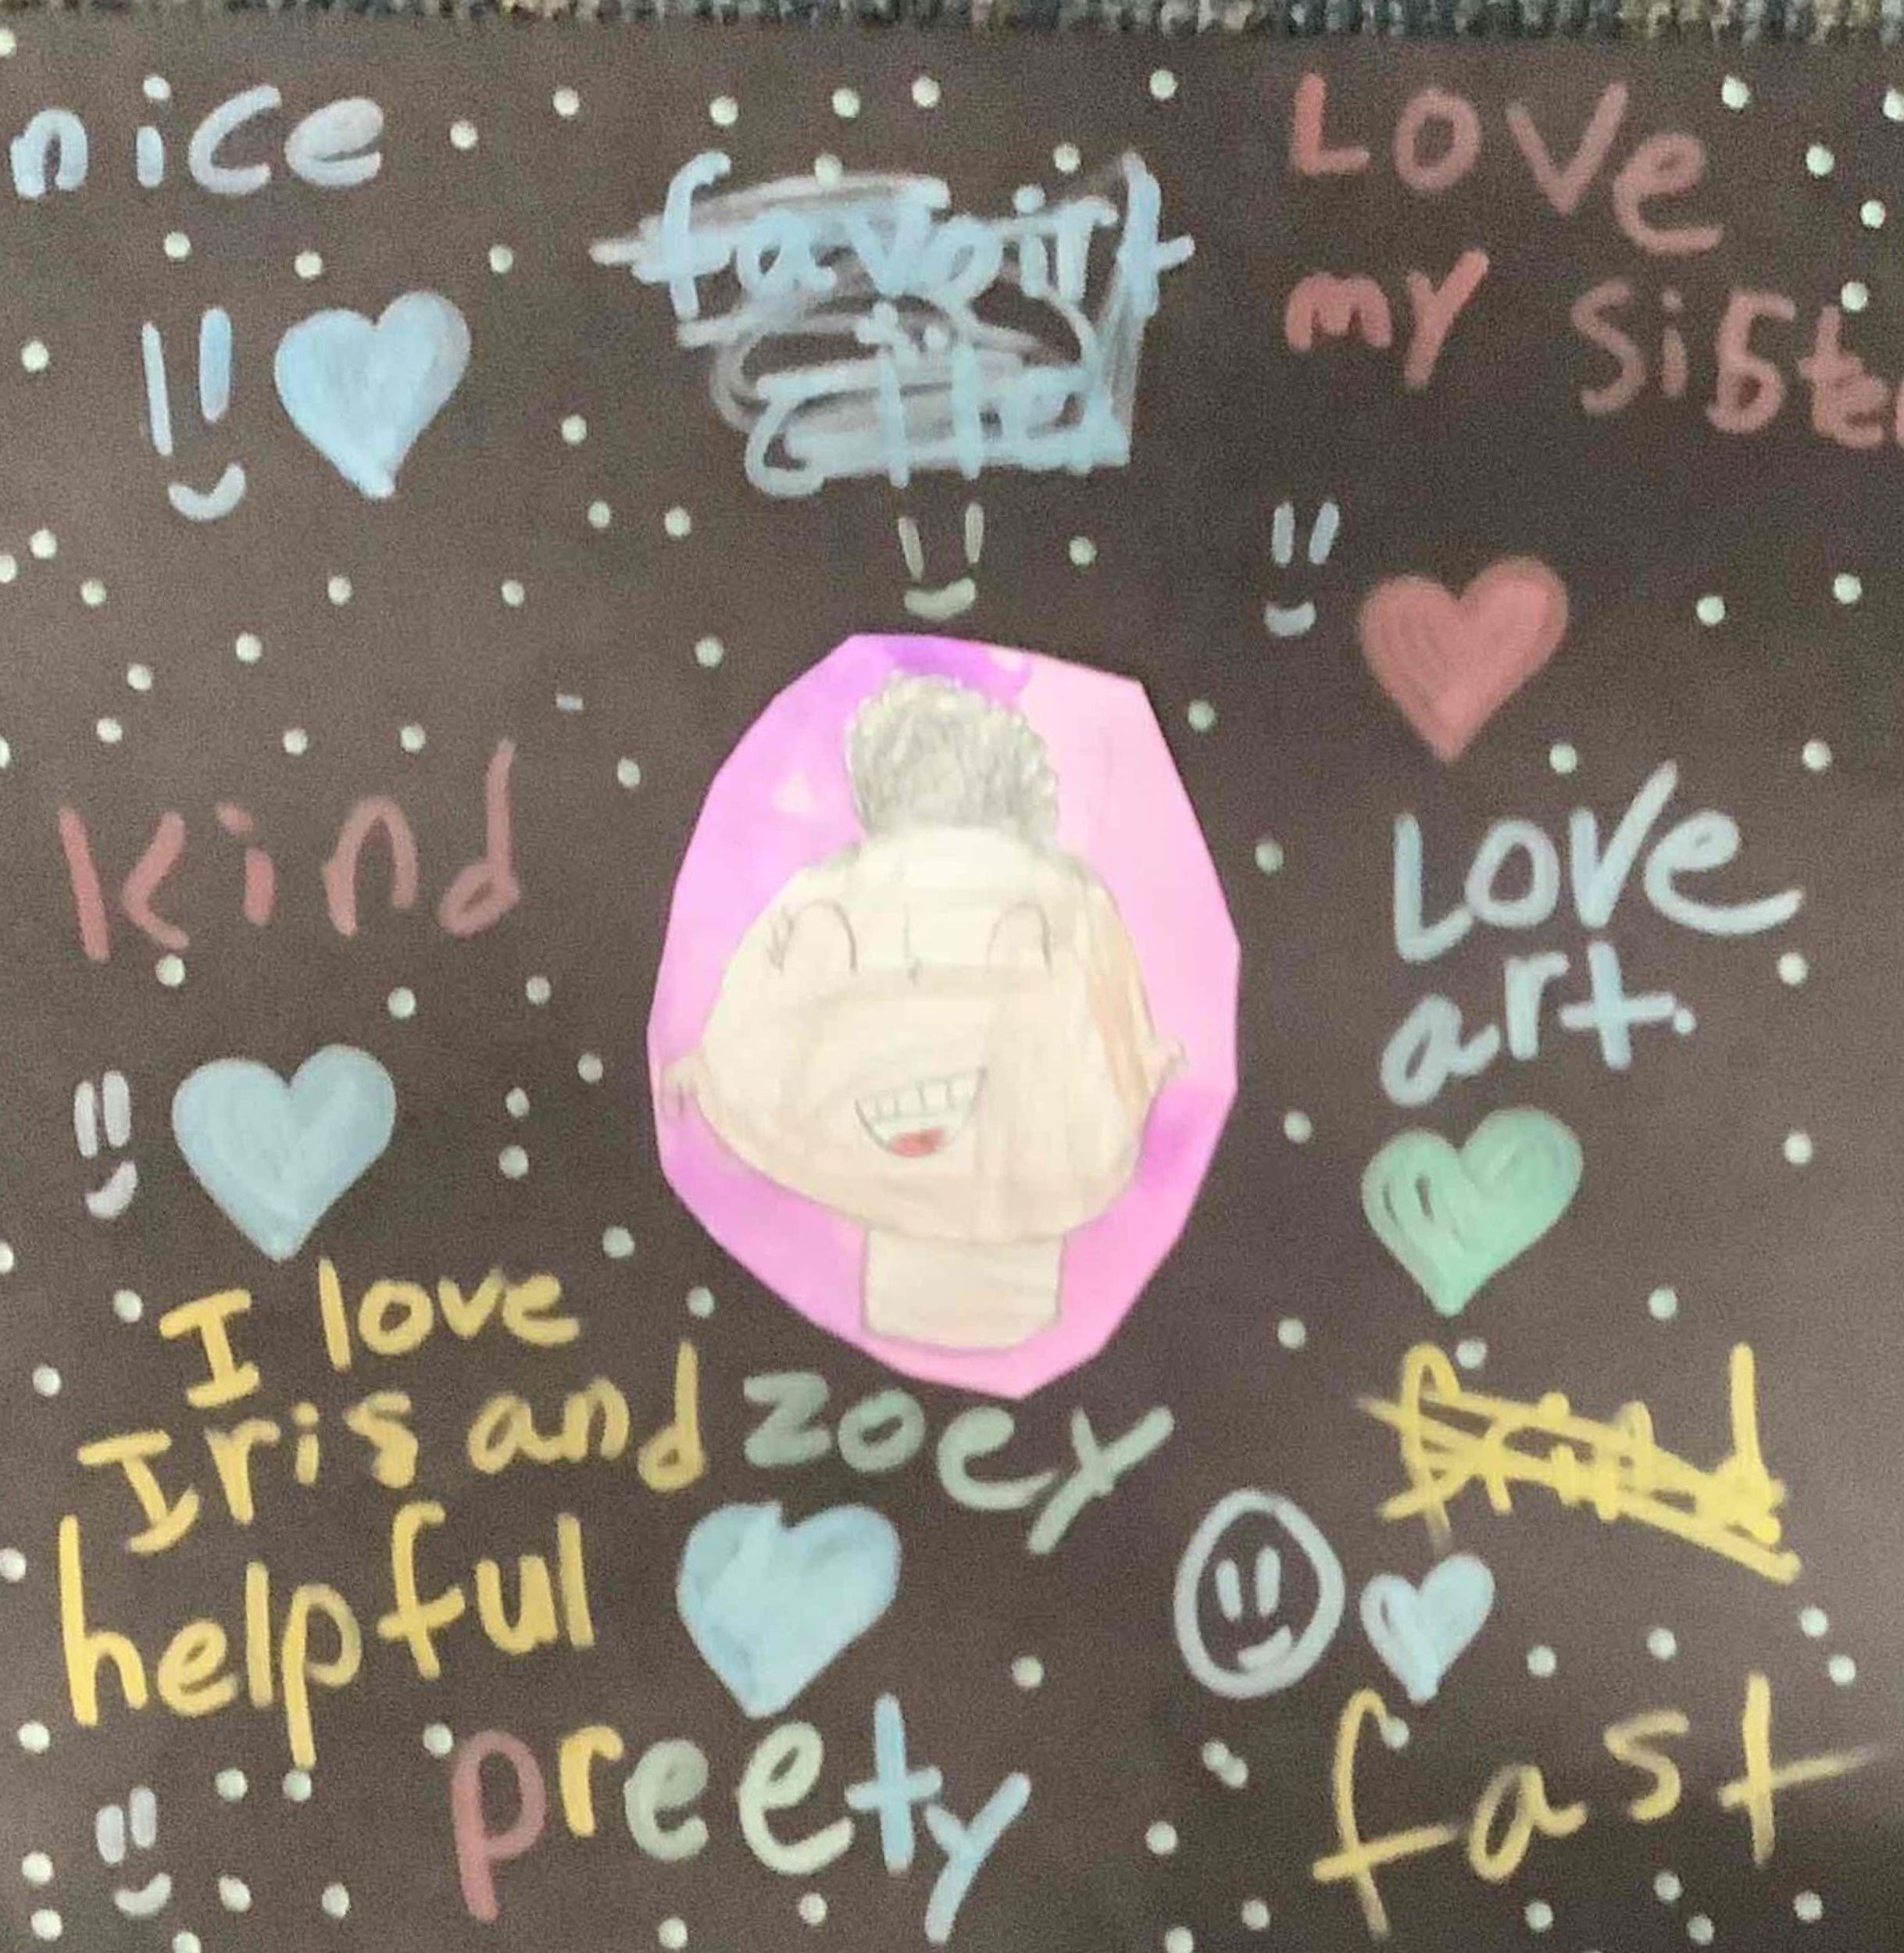 nice
Love
my sister
kind
Love
art.
I love
Iris and zoey
helpful
preety
fast